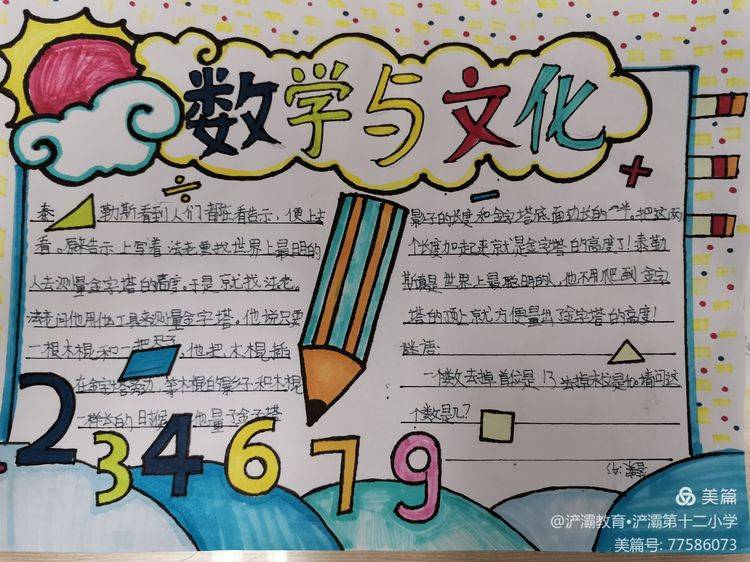 数学与文化
泰勒斯看到人们都在看告示，便上去
看。原来告示上写着法老要找世界上最聪明的
人去测量金字塔的高度。于是就找法老。
法老问他用什么工具来测量金字塔。他说只要
一根木棍和一把尺子，他把木棍插
在金字塔旁边，等木棍的影子和木棍
一样长的时候，他量了金字塔
影子的长度和金字塔底面边长的一半。把这两
个长度加起来就是金字塔的高度了！泰勒
斯真是世界上最聪明的人，他不用爬到金字
塔的顶上就方便量出了金字塔的高度！
谜语：
一个数去掉首位是13，去掉末位是40.请问这
个数是几？
2 3 4 6 7 9
美篇
@浐灞教育•浐灞第十二小学
美篇号: 77586073